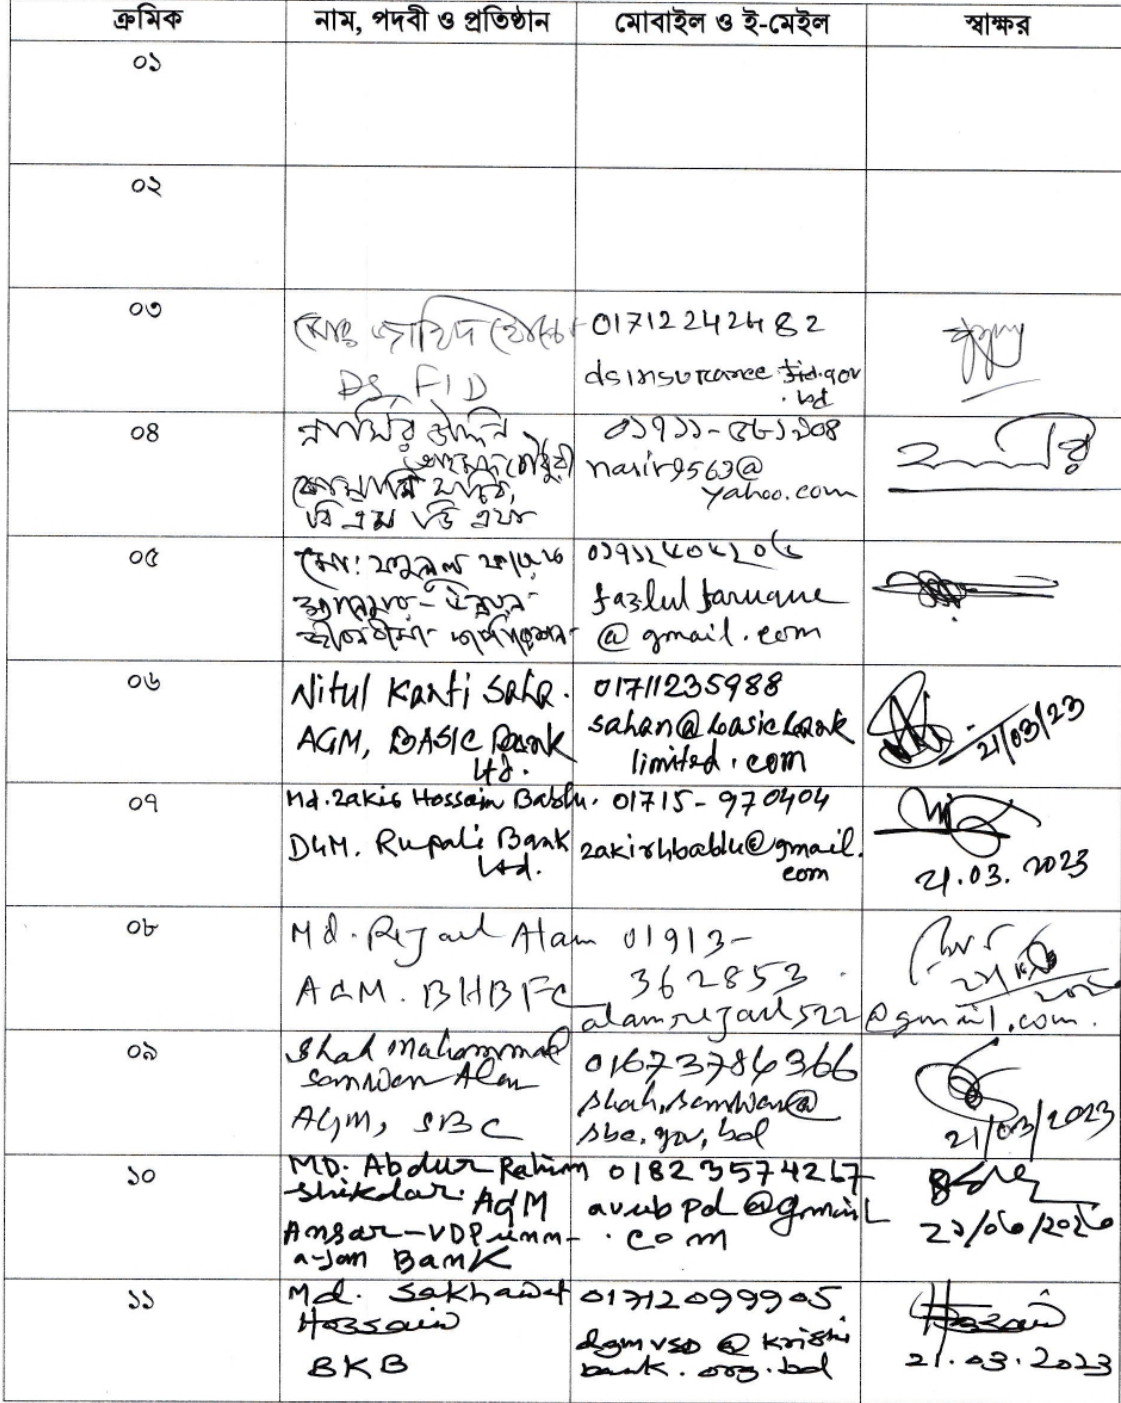 ক্রমিক নাম, পদবী ও প্রতিষ্ঠান মোবাইল ও ই-মেইল স্বাক্ষর
০১
০২
০৩
মোঃ জাহিদ হোসেন
DS, FID
01712242482
dsinsurance.fid.gov
.bd
০৪
নাসির উদ্দিন
আহমেদ চৌধুরী
nasir9563@
yahoo.com
০৫
মো: ফজলুল ফারুক
০১৭১২৪০৫২০৬
fazlulfaruque
@gmail.com
০৬
Nitul Kanti Saha.
AGM, BASIC Bank
Ltd.
01711235988
sahan@basicbank
limited.com
21/03/23
০৭
Md. Zakir Hossain Bablu.
DGM. Rupali Bank
Ltd.
01715-970404
zakirhbablu@gmail.
com
21.03.2023
০৮
Md. Rejaul Alam
AGM. BHBFC
01913-
362853
alamrejaul522@gmail.com.
০৯
Shah Mahammad
Samwan Alam
AGM, SBC
01673784366
shah.samwan@
sbc.gov.bd
21/03/2023
১০
MD. Abdur Rahim
Shikdar. AGM
Ansar-VDP unn-
a-yan Bank
01823574267
avubpd@gmail
.com
১১
Md. Sakhawat
Hossain
BKB
01712099905
dgmvsd@krishi
bank.org.bd
Hossain
21.03.2023